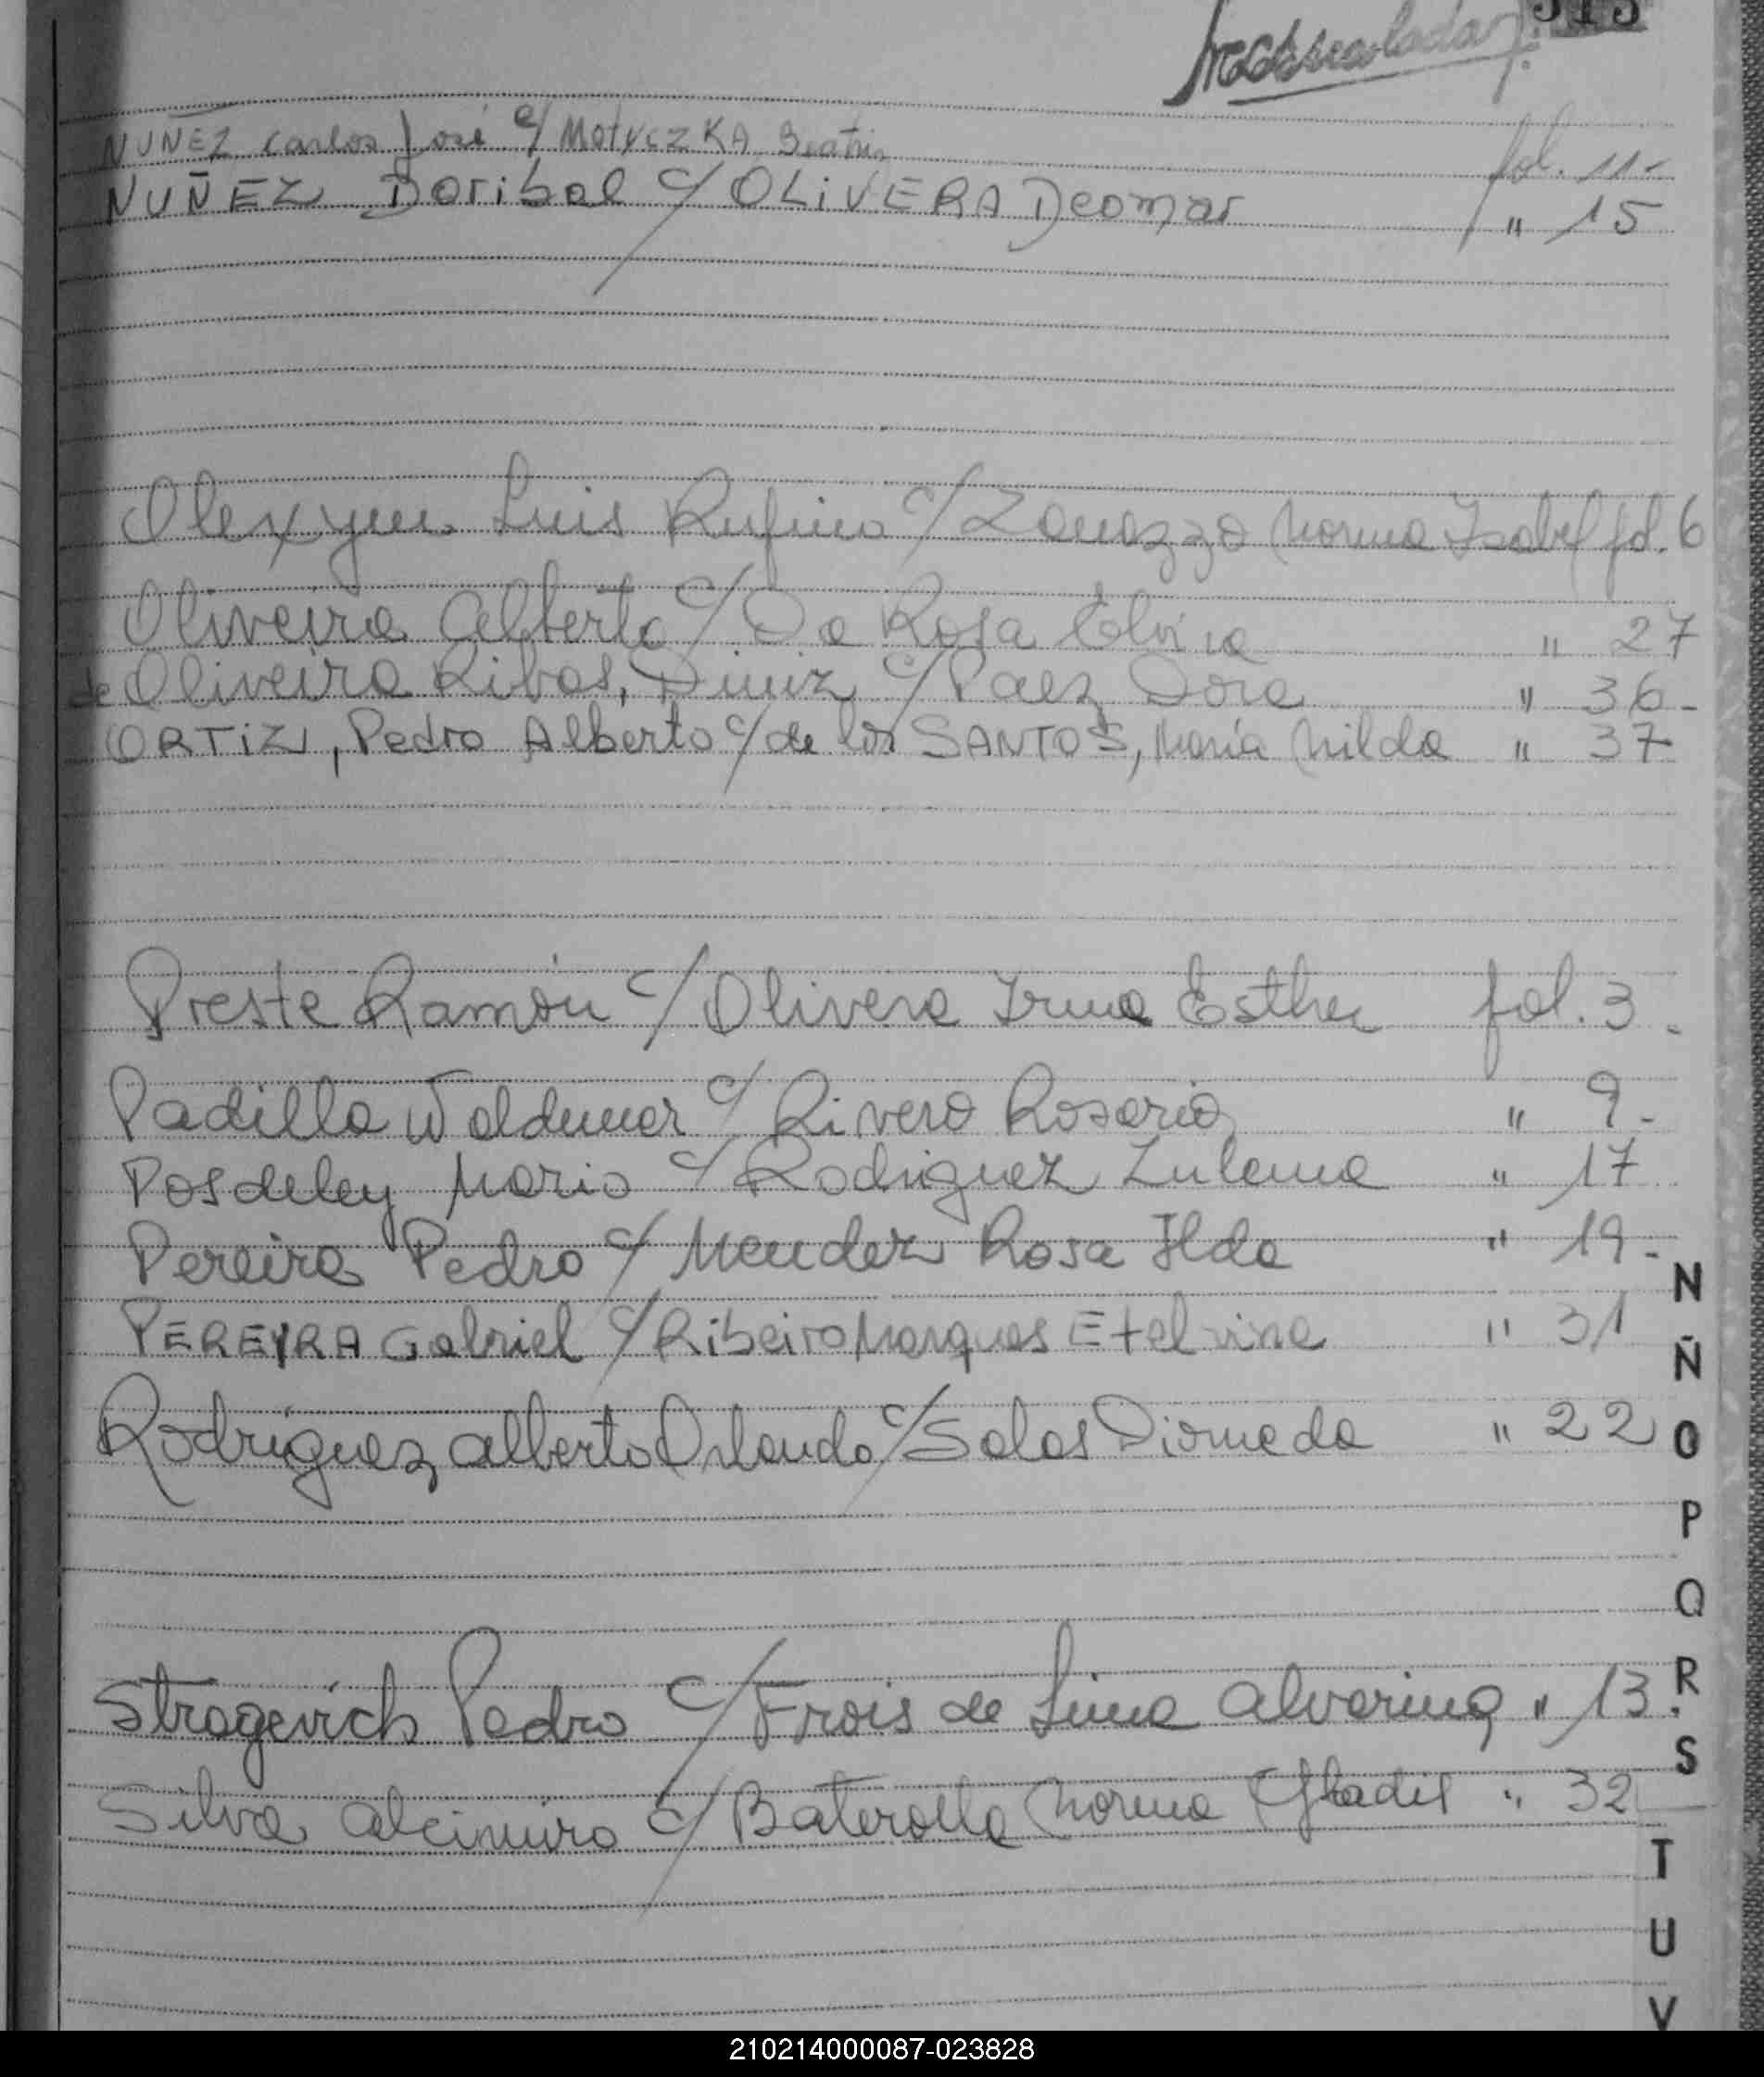 515
NUÑEZ Carlos José c/ MOTYCZKA Beatriz fol. 11-
NUÑEZ Doribal c/ OLIVERA Deomar " 15
Olexyn Luis Rufino c/ Zanazzo Norma Isabel fol. 6
Oliveira Alberto c/ Da Rosa Elvira " 27
de Oliveira Ribas, Diniz c/ Paez Dora " 36-
ORTIZ, Pedro Alberto c/ de los SANTOS, María Nilda " 37
Preste Ramón c/ Olivera Irma Esther fol. 3.
Padilla Waldemar c/ Rivero Rosario " 9-
Posdeley Mario c/ Rodriguez Zulema " 17
Pereira Pedro c/ Mendez Rosa Ilda " 19-
PEREYRA Gabriel c/ Ribeiro Marques Etelvina " 31
Rodríguez Alberto Orlando c/ Salas Diomeda " 22
Strogevich Pedro c/ Frois de Lima Alvarina " 13.
Silva Alcimiro c/ Baterolla Norma Gladis " 32
N
Ñ
O
P
Q
R
S
T
U
V
210214000087-023828